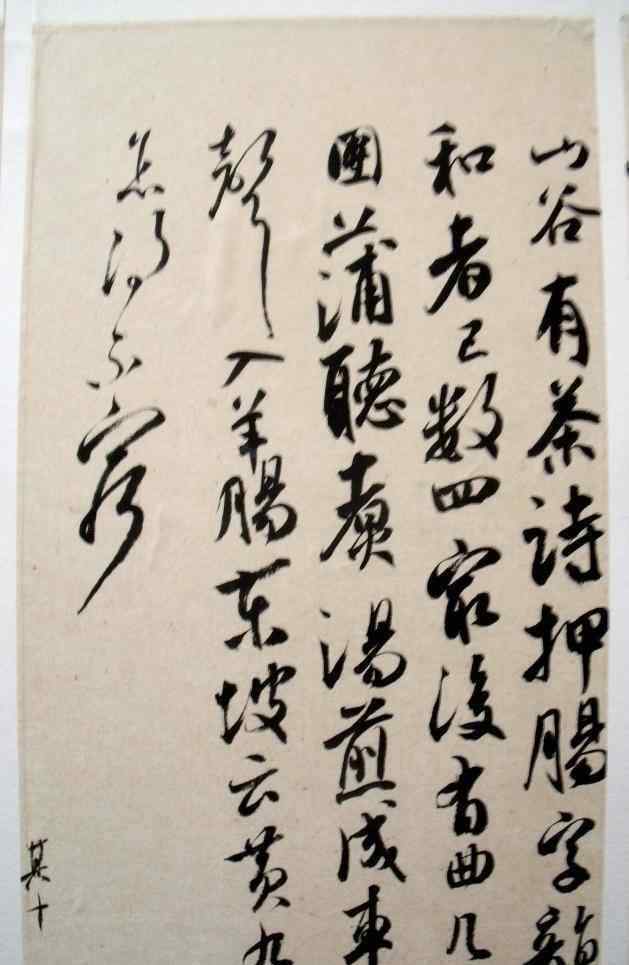 山谷有茶詩押腸字韻
和者已數四最後有曲几
團蒲聽煮湯煎成車
聲入羊腸東坡云黄九
怎得不窮
其十